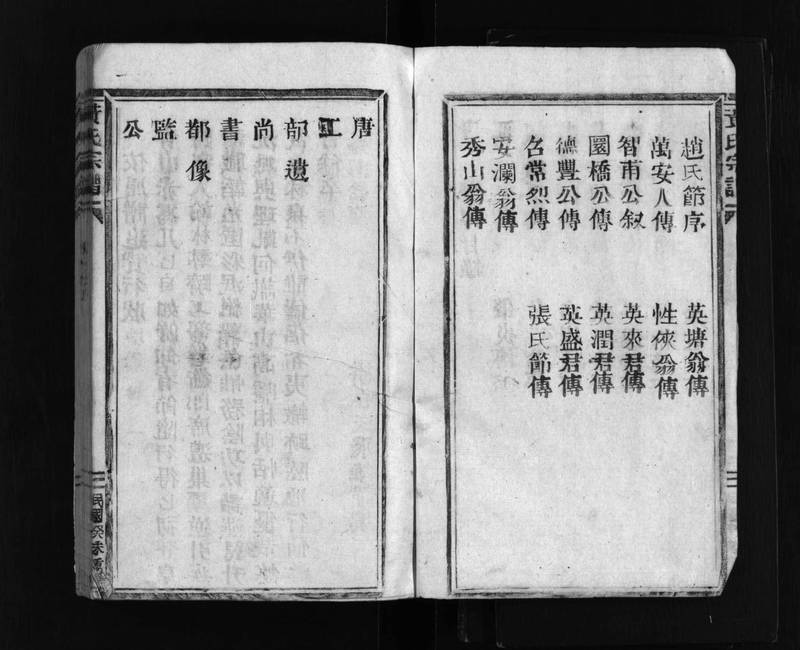 趙氏節序
英塘翁傳
萬安人傳
性俠翁傳
智甫公叙
英來君傳
圜橋公傳
英潤君傳
德豐公傳
英盛君傳
召常烈傳
張氏節傳
安瀾翁傳
秀山翁傳
唐工部尚書都監公
遺像
黃氏宗譜
民國癸未